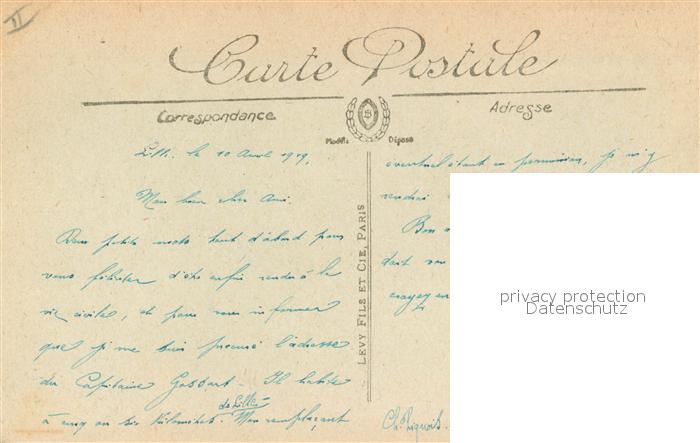 II
Carte Postale
Correspondance
Adresse
Modèle Déposé
S
LEVY FILS ET CIE, PARIS
Lille, le 10 Avril 1919,
Mon bien cher Ami,
Deux petits mots tout d'abord pour
vous féliciter d'être enfin rendu à la
vie civile, et pour vous informer
que je me suis procuré l'adresse
du Capitaine Gossart. Il habite
à cinq ou six kilomètres de Lille. Mon remplaçant
éventuel étant en permission, je m'y
rendrai
Bon
dont vou
croyez en
Ch.
privacy protection
Datenschutz